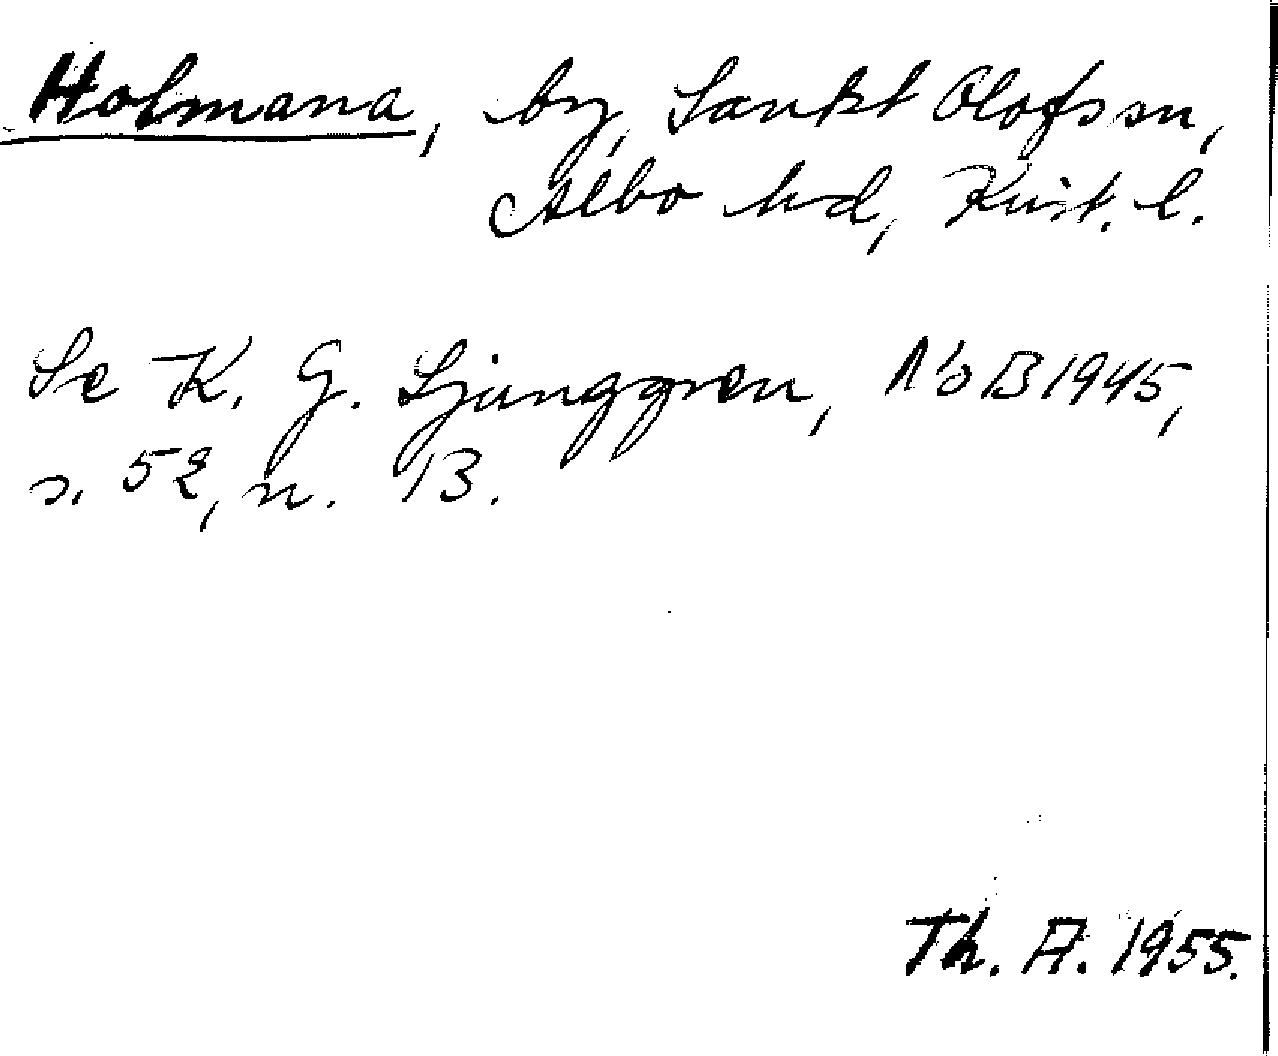 Holmana, by, Sankt Olofs sn,
Albo hd, Krist. l.
Se K. G. Ljunggren, NoB 1945,
s. 52, n. 13.
Th. A. 1955.